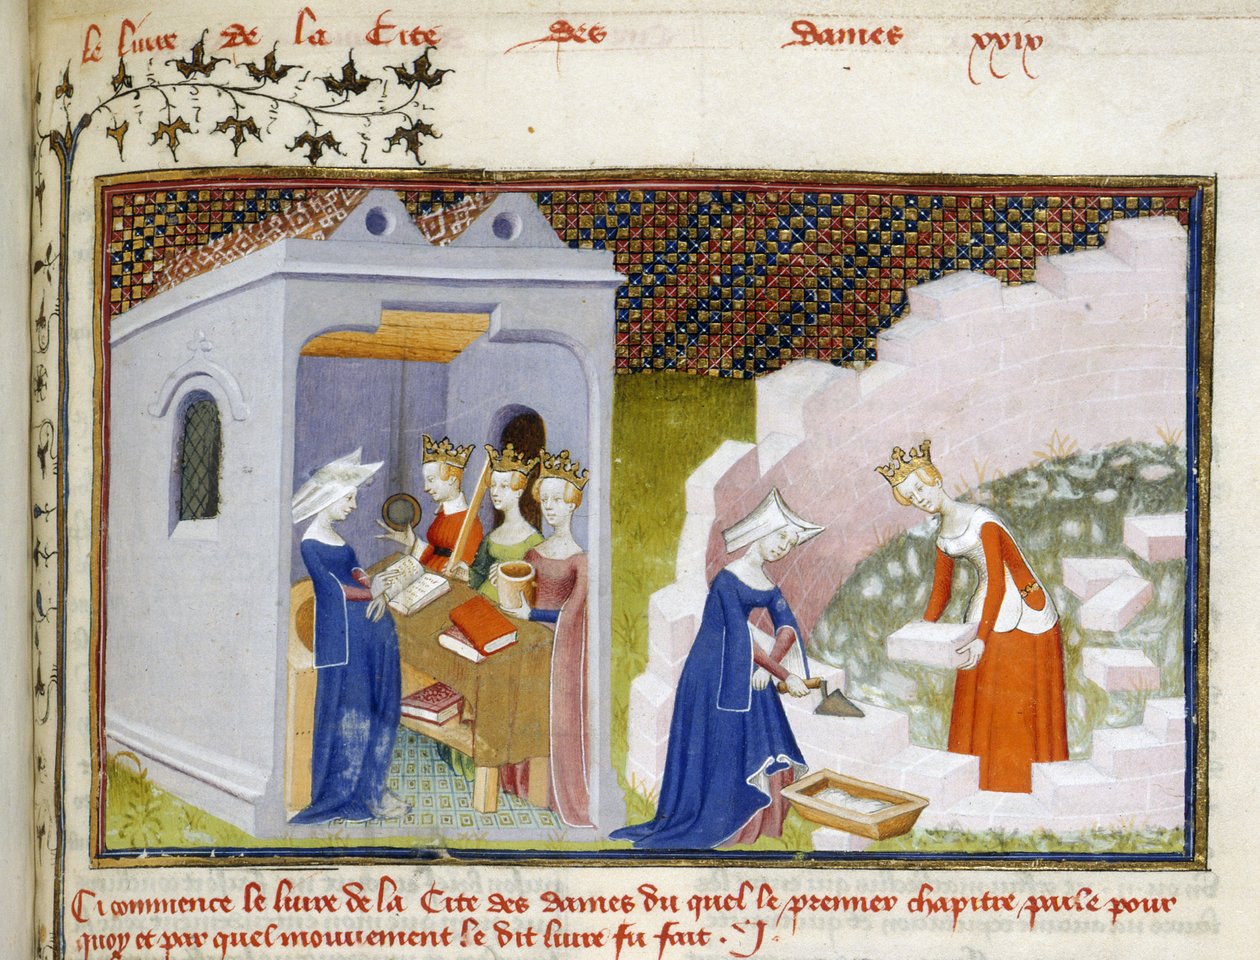 le liure de la Cite des dames xxix
Ci commence le liure de la Cite des dames du quel le premier chapitre parle pour
quoy et par quel mouuement le dit liure fu fait . I .